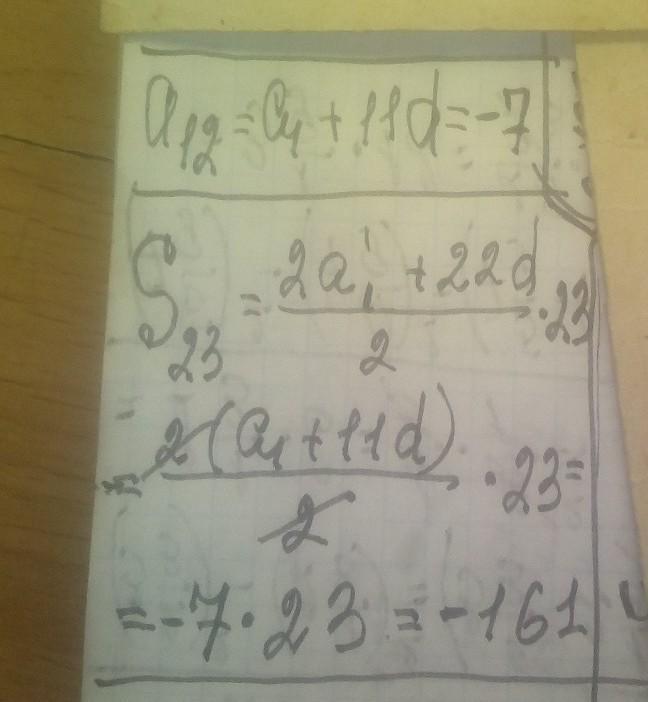 a₁₂ = a₁ + 11d = -7
S₂₃ = (2a₁ + 22d)/2 · 23 =
= 2(a₁ + 11d)/2 · 23 =
= -7 · 23 = -161